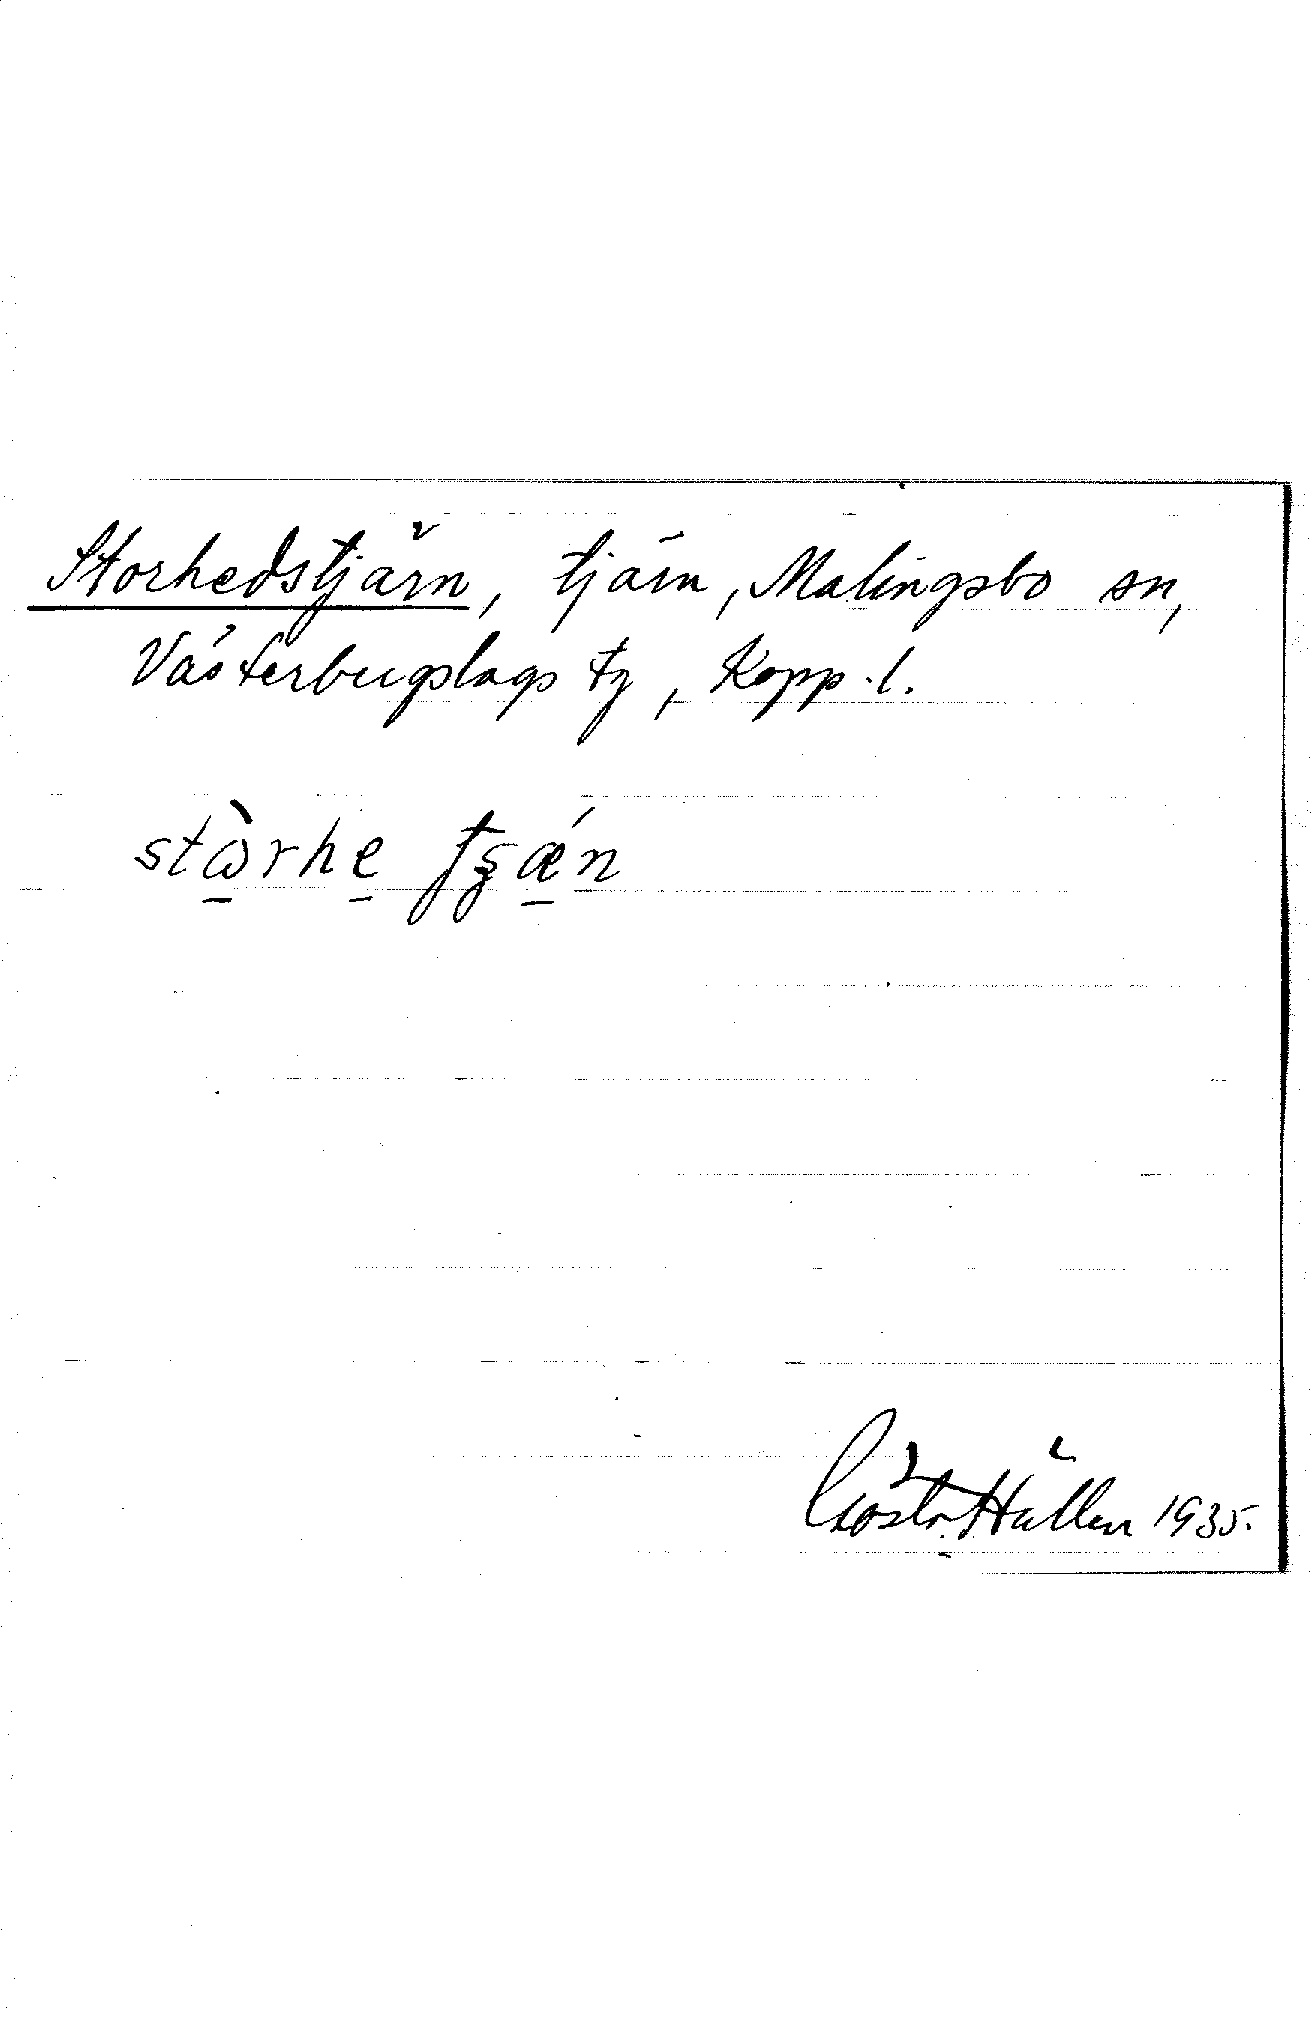 Storhedstjärn, tjärn, Malingsbo sn,
Västerbergslags tg, Kopp. l.
stὼ̲rhe̲ ʈʂǽ̲n
Gösta Hallen 1935.